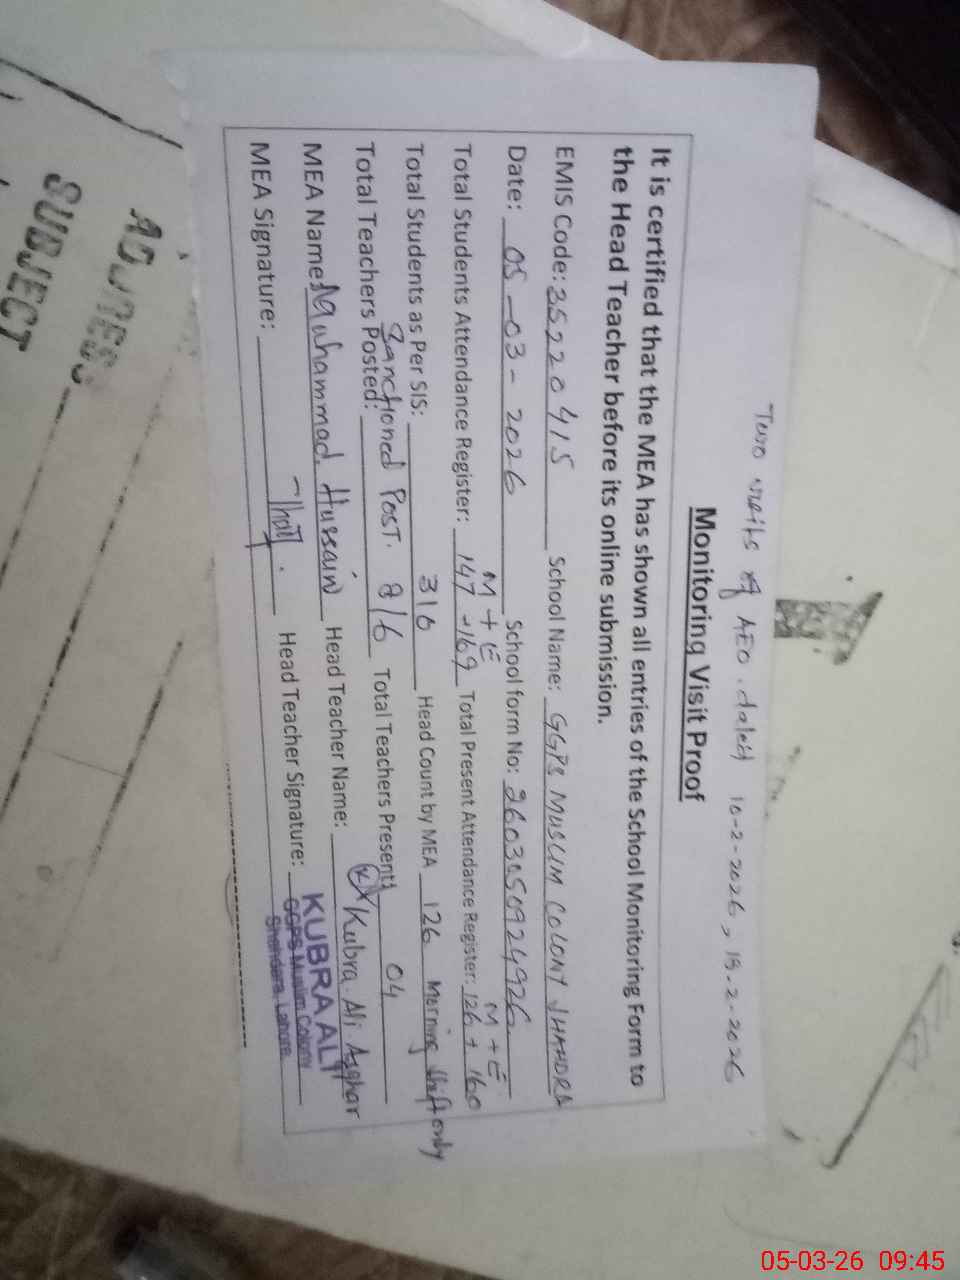 Two visits of AEO. dated 10-2-2026, 19.2.2026
Monitoring Visit Proof
It is certified that the MEA has shown all entries of the School Monitoring Form to
the Head Teacher before its online submission.
EMIS Code: 35220415 School Name: GGPS MUSLIM COLONY SHAHDRA
Date: 05-03-2026 School form No: 2603050924926
M + E M + E
Total Students Attendance Register: 147-169 Total Present Attendance Register: 126 + 160
Total Students as Per SIS: 316 Head Count by MEA 126 Morning shift only
Sanctioned Post.
Total Teachers Posted: 8/6 Total Teachers Present: 04
MEA Name: Muhammad Hussain Head Teacher Name: Kubra Ali Asghar
MEA Signature: Head Teacher Signature:
KUBRA ALI
GGPS Muslim Colony
Shahdara, Lahore
ADJRESS
SUBJECT
05-03-26 09:45